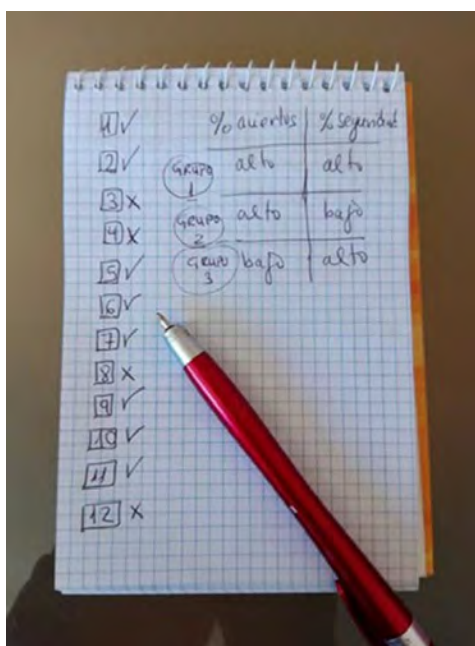 1 ✓
2 ✓
3 x
4 x
5 ✓
6 ✓
7 ✓
8 x
9 ✓
10 ✓
11 ✓
12 x
% aciertos % seguridad
GRUPO 1 alto alto
GRUPO 2 alto bajo
GRUPO 3 bajo alto